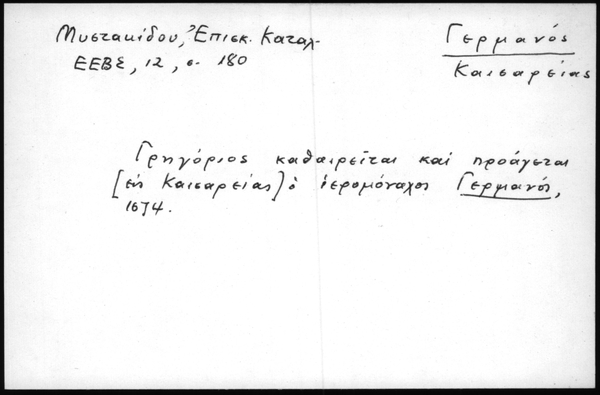 Μυστακίδου, Ἐπισκ. Καταλ-
ΕΕΒΣ, 12, σ. 180
Γερμανός
Καισαρείας
Γρηγόριος καθαιρεῖται καὶ προάγεται
[εἰς Καισαρείας] ὁ ἱερομόναχος Γερμανός,
1674.